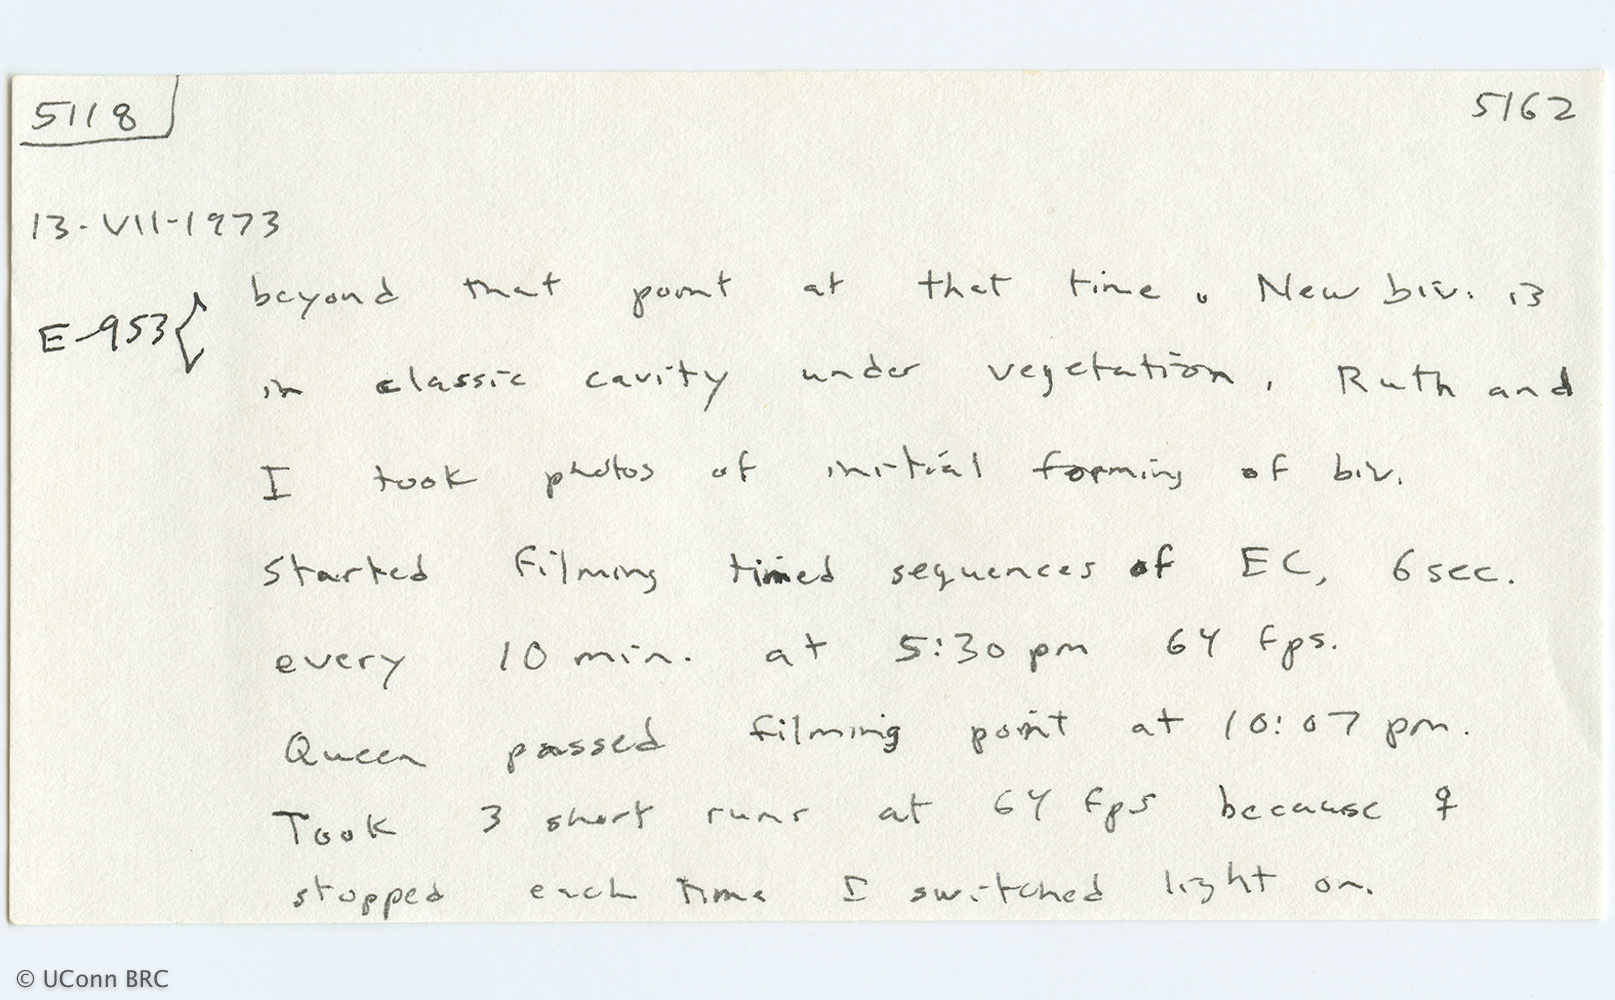 5118
5162
13-VII-1973
E-953{
beyond that point at that time. New biv. is
in classic cavity under vegetation. Ruth and
I took photos of initial forming of biv.
Started filming timed sequences of EC, 6 sec.
every 10 min. at 5:30 pm 64 fps.
Queen passed filming point at 10:07 pm.
Took 3 short runs at 64 fps because ♀
stopped each time I switched light on.
© UConn BRC